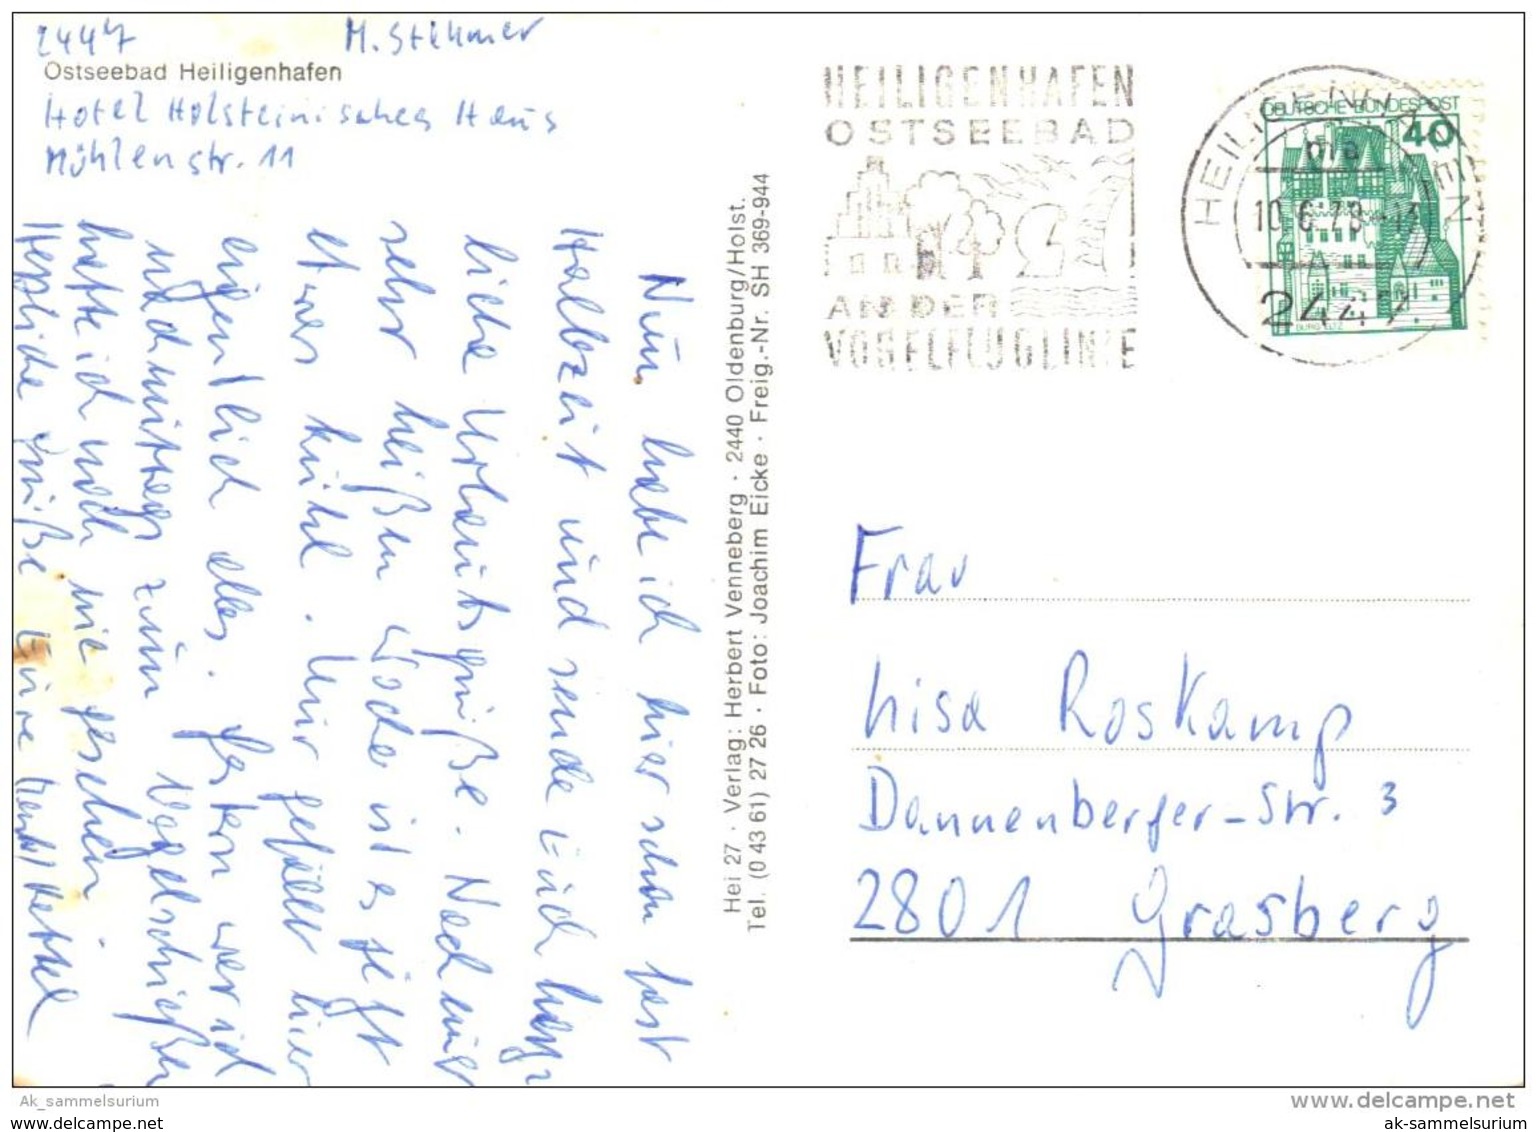 2447 M. Stehmer
Ostseebad Heiligenhafen
Hotel Holsteinisches Haus
Mühlenstr. 11
Nun habe ich hier schon fast
Halbzeit und sende Euch herz-
liche Urlaubsgrüße. Nach einer
sehr heißen Woche ist es jetzt
etwas kühl. Mir gefällt hier
eigentlich alles. Gestern war ich
nachmittags zum Vogelschießen
hatte ich noch nie gesehen
Herzliche Grüße Eure
Hei 27 · Verlag: Herbert Venneberg · 2440 Oldenburg/Holst.
Tel. (0 43 61) 27 26 · Foto: Joachim Eicke · Freig.-Nr. SH 369-944
HEILIGENHAFEN
OSTSEEBAD
AN DER
VOGELFLUGLINIE
HEILIGENHAFEN
ma
10.6.78-13
2447
DEUTSCHE BUNDESPOST
40
BURG ELTZ
Frau
Lisa Roskamp
Dannenberger-Str. 3
2801 Grasberg
Ak_sammelsurium
www.delcampe.net
www.ak-sammelsurium.com
ak-sammelsurium